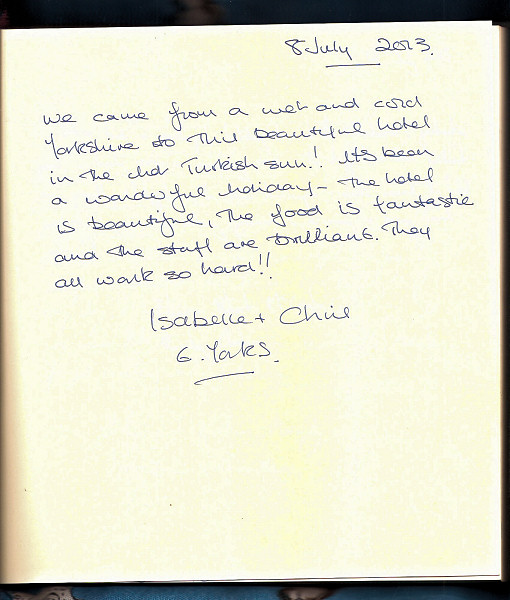 8 July 2013.
We came from a wet and cold
Yorkshire to this beautiful hotel
in the hot Turkish sun! Its been
a wonderful holiday - the hotel
is beautiful, the food is fantastic
and the staff are brilliant. They
all work so hard!!
Isabelle +
E. Yorks.